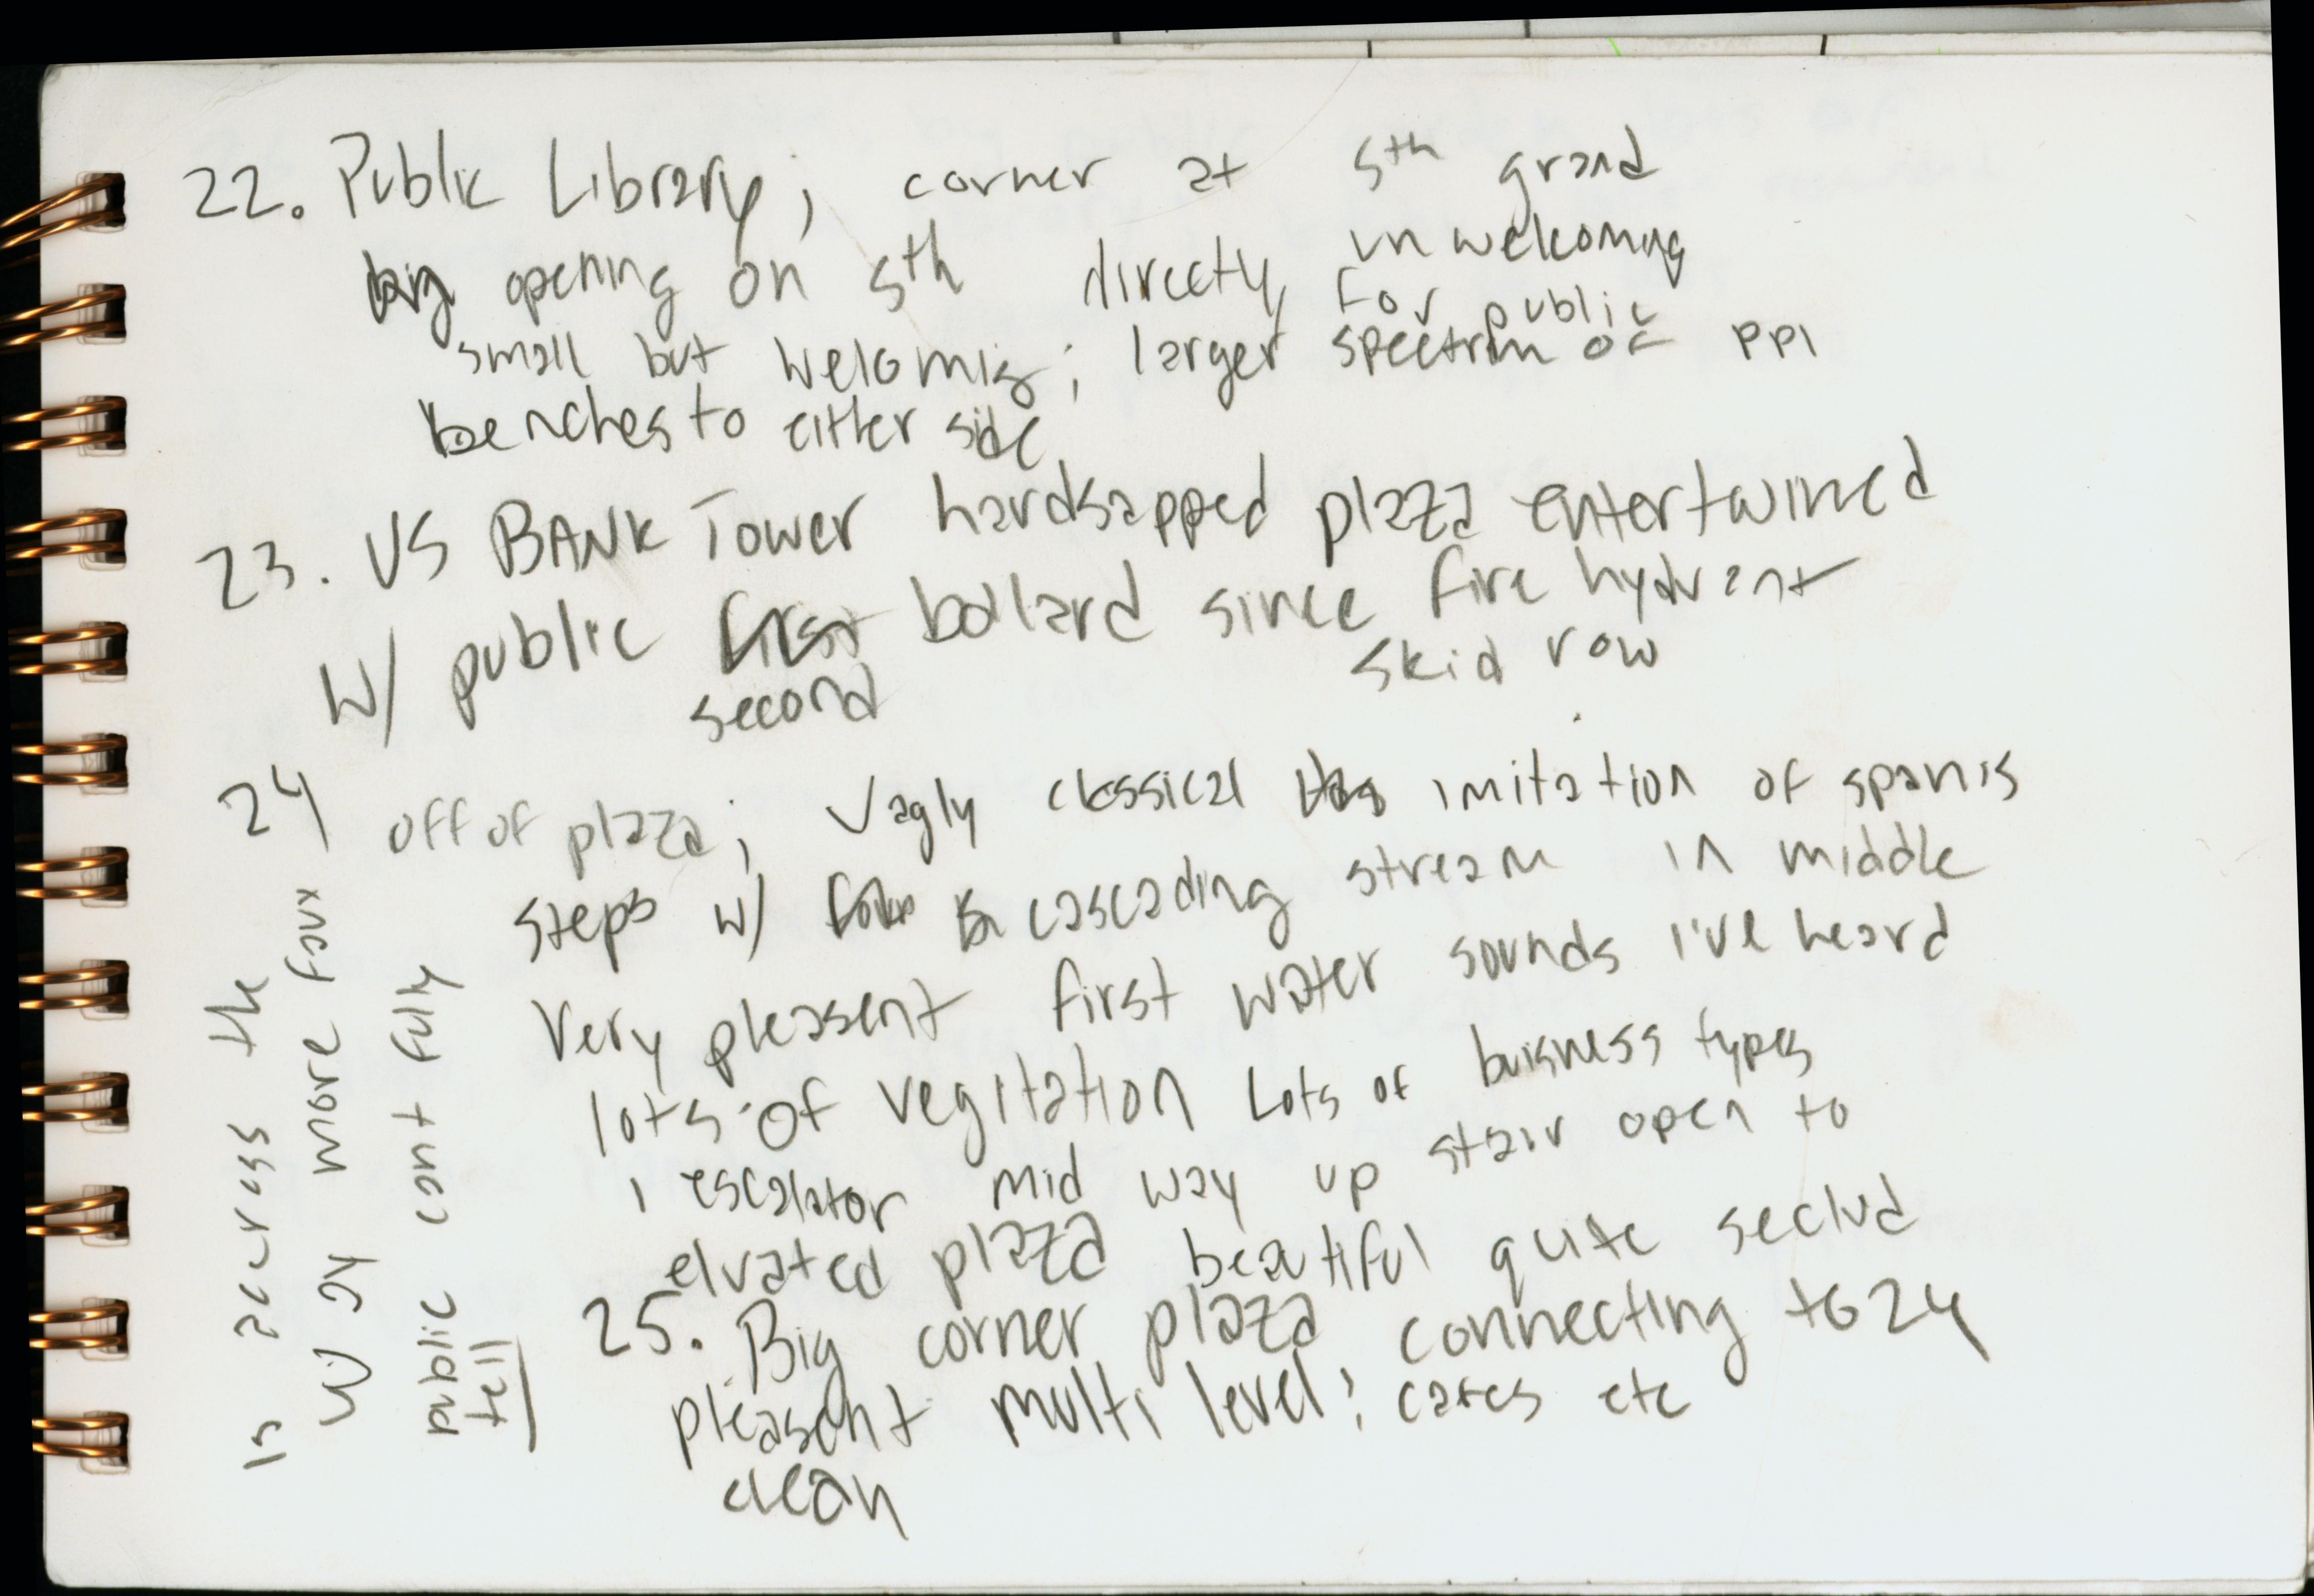 22. Public Library; corner at 5th grand
big opening on 5th directly unwelcoming
for public
small but welcomig; larger spectrum of ppl
benches to either side
23. US BANK Tower hardsapped plaza entertwined
W/ public first bollard since fire hydrant
second skid row
24 off of plaza; Vagly classical imitation of spanis
steps w/ cascading stream in middle
Very pleasent first water sounds I've heard
lots of vegitation Lots of buisness types
1 escalator mid way up stair open to
elvated plaza beautiful quite seclud
25. Big corner plaza connecting to 24
pleasent multi level; cafes etc
clean
is accross the
W/ 24 more faux
public cant fully
tell